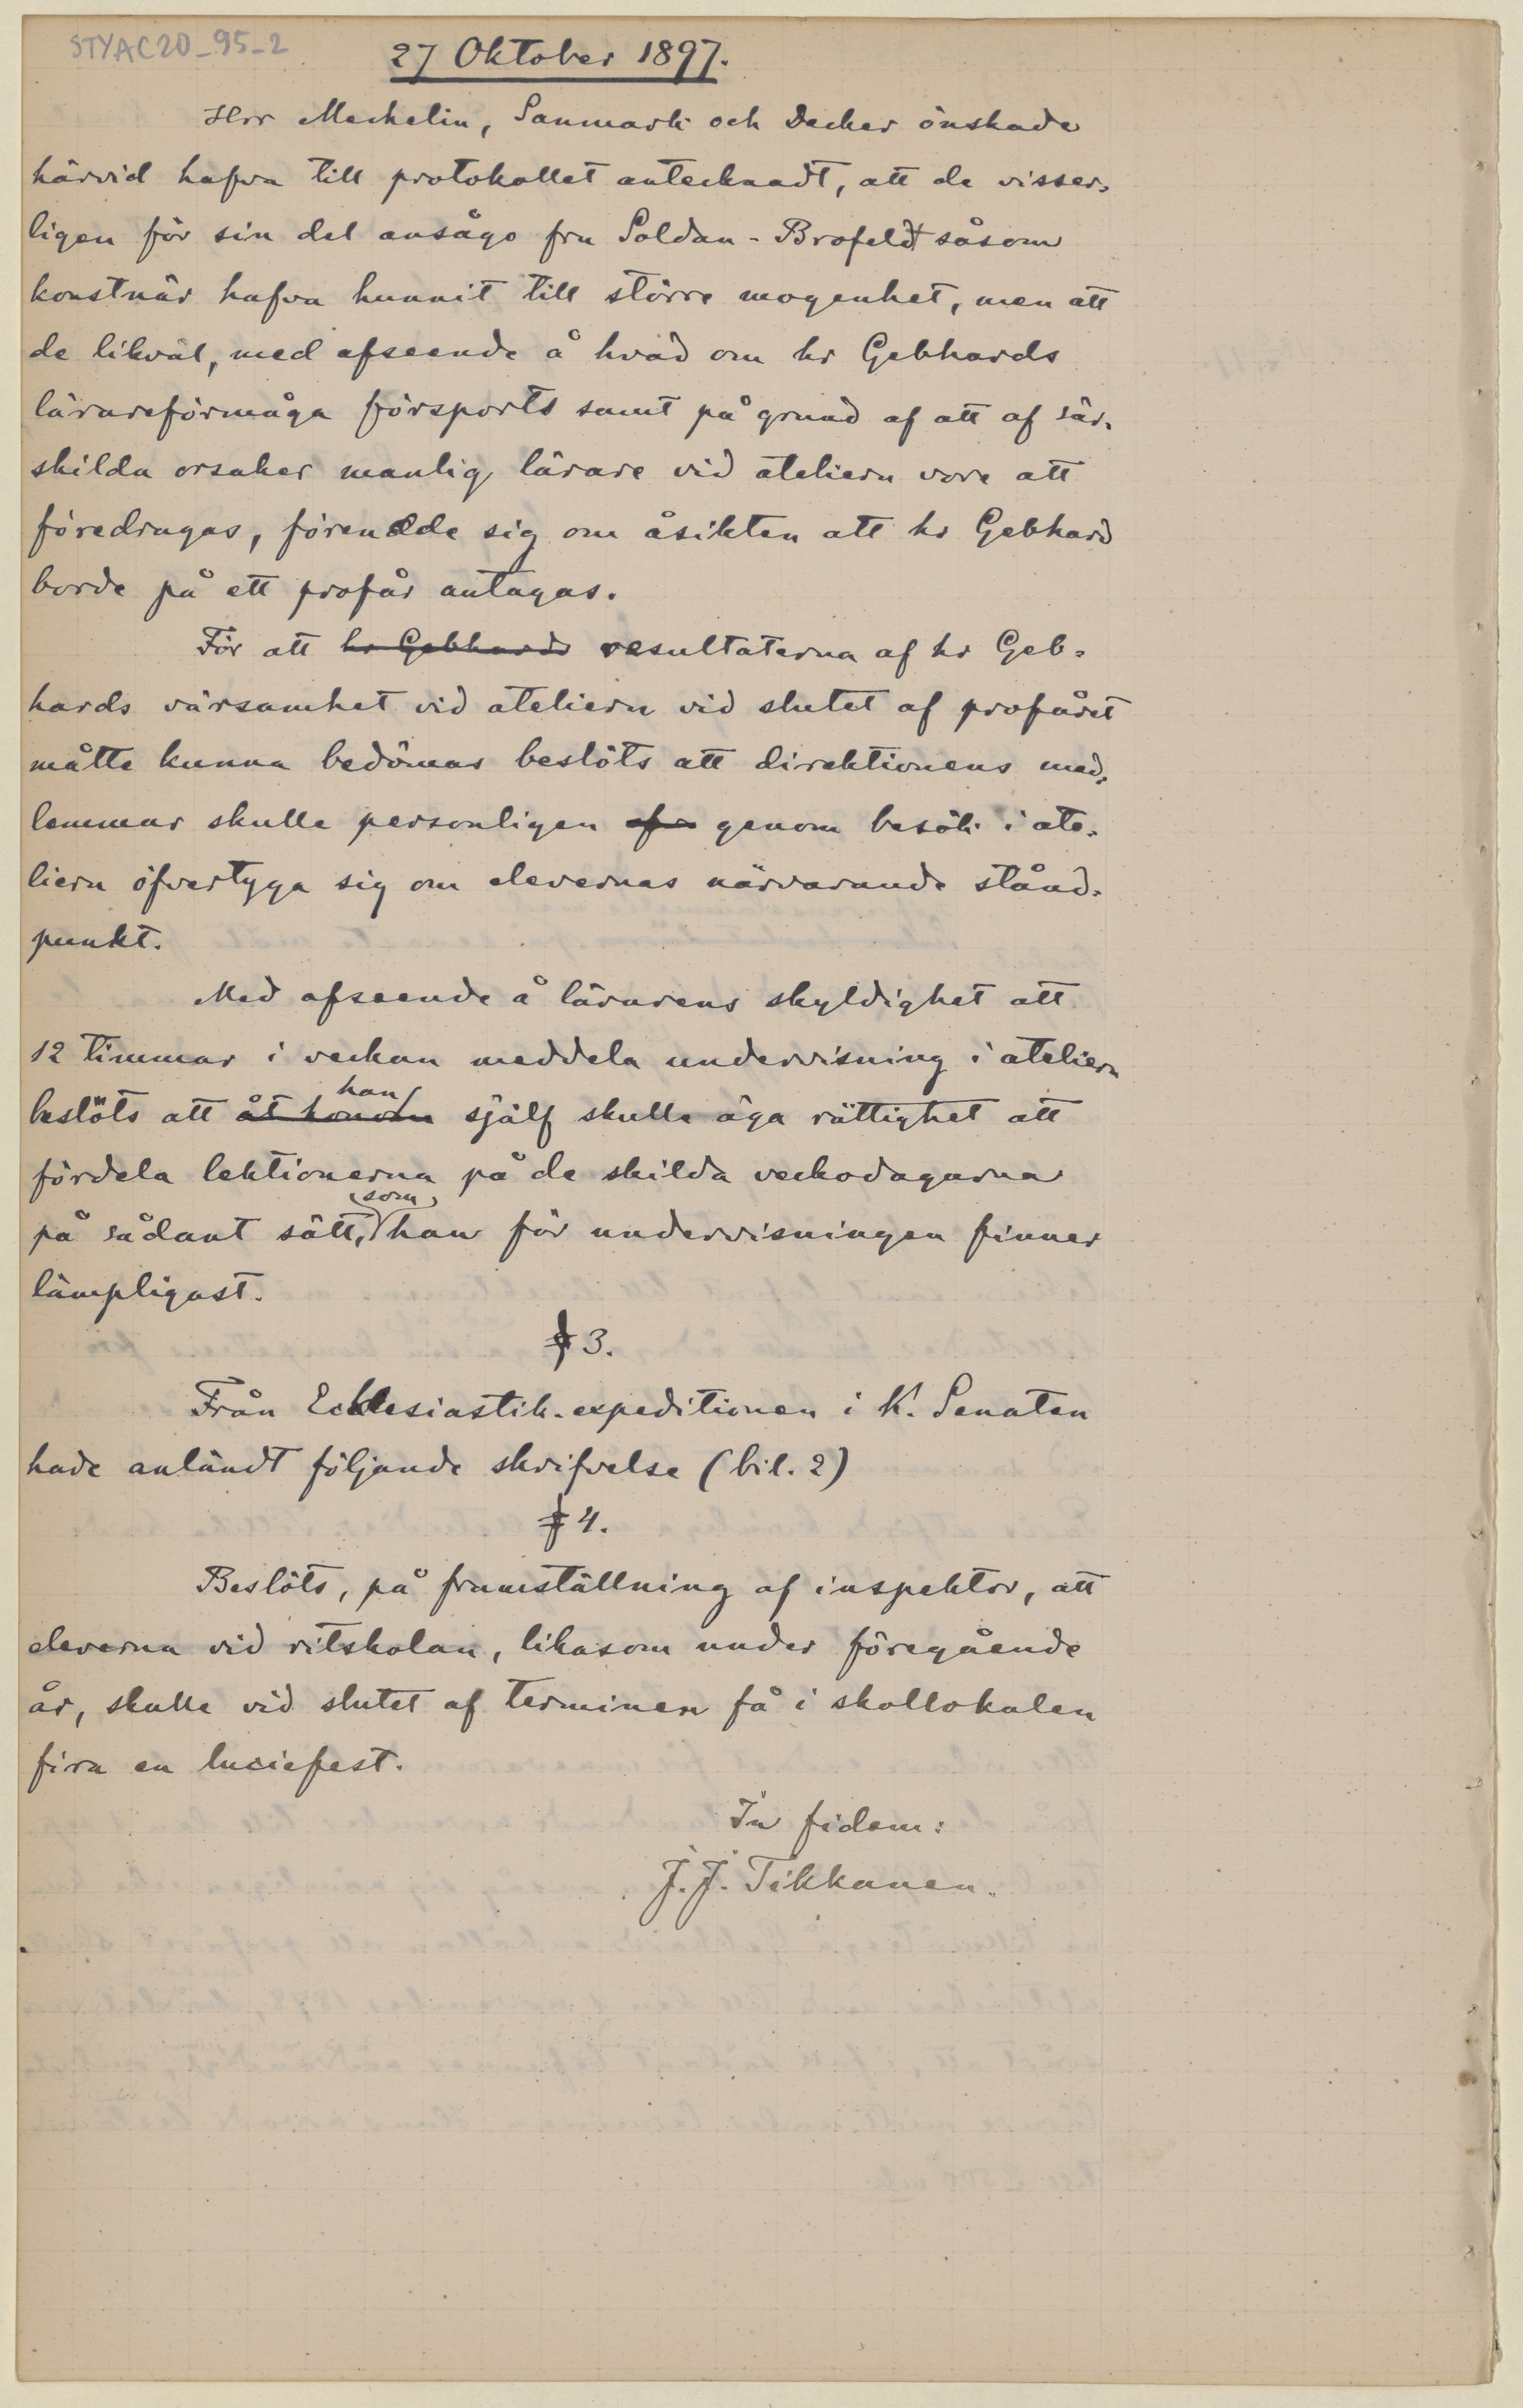 STYAC20_95-2
27 Oktober 1897.
Hrr Mechelin, Sanmark och Decker önskade
härvid hafva till protokollet antecknadt, att de visser-
ligen för sin del ansågo fru Soldan-Brofeldt såsom
konstnär hafva hunnit till större mogenhet, men att
de likväl, med afseende å hvad om hr Gebhards
lärareförmåga försports samt på grund af att af sär-
skilda orsaker manlig lärare vid ateliern vore att
föredragas, förenade sig om åsikten att hr Gebhard
borde på ett profår antagas.
För att hr Gebhards resultaterna af hr Geb-
hards värsamhet vid ateliern vid slutet af profåret
måtte kunna bedömas beslöts att direktionens med-
lemmar skulle personligen genom besök i ate-
liern öfvertyga sig om elevernas närvarande stånd-
punkt.
Med afseende å lärarens skyldighet att
12 timmar i veckan meddela undervisning i ateliern
beslöts att åt honom han själf skulle äga rättighet att
fördela lektionerna på de skilda veckodagarna
på sådant sätt, som han för undervisningen finner
lämpligast.
§ 3.
Från Ecklesiastik-expeditionen i K. Senaten
hade anländt följande skrifvelse (bil. 2)
§ 4.
Beslöts, på framställning af inspektor, att
eleverna vid ritskolan, likasom under föregående
år, skulle vid slutet af terminen få i skollokalen
fira en luciefest.
In fidem:
J. J. Tikkanen.